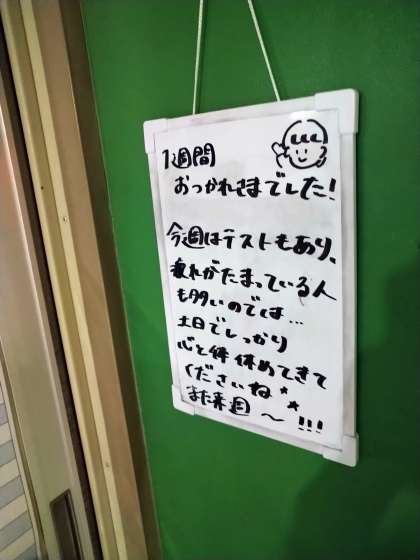 1週間
おつかれさまでした!
今週はテストもあり、
疲れがたまっている人
も多いのでは…
土日でしっかり
心と体休めてきて
くださいね
また来週 〜 !!!